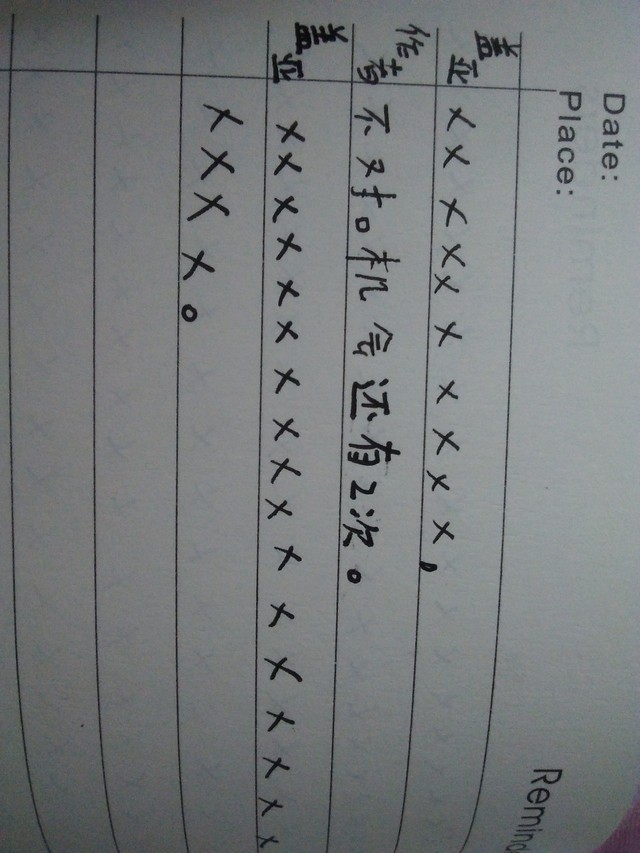 Date:
Place:
Remind
盖亚 ××××××××××，
作者 不对。机会还有2次。
盖亚 ×××××××××××××××××
××××。